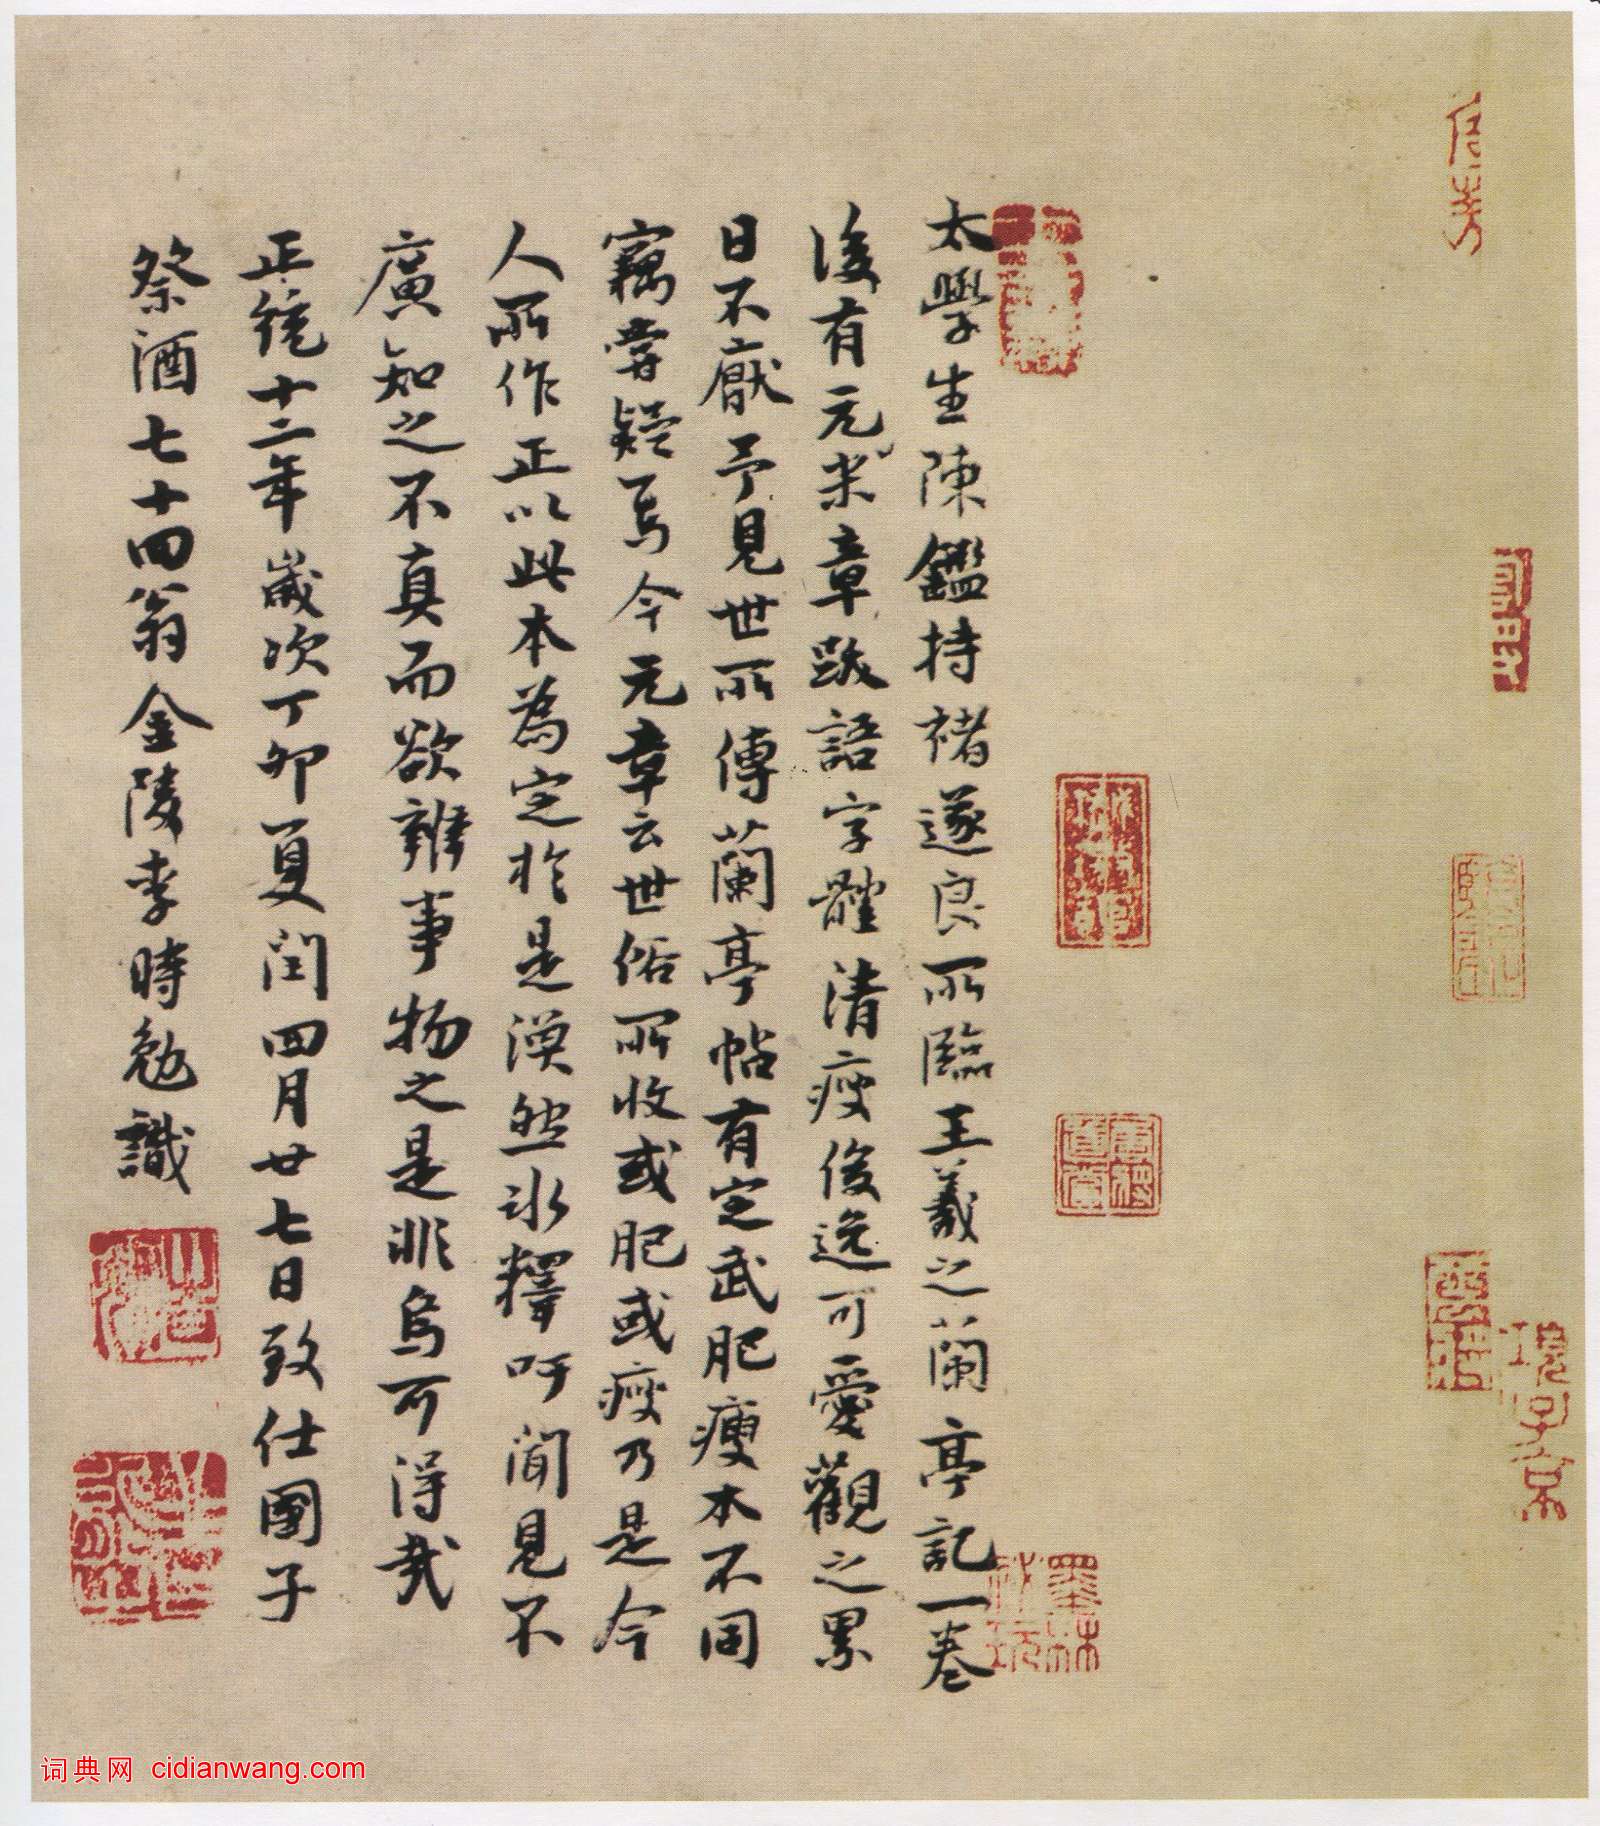 太學生陳鑑持褚遂良所臨王羲之蘭亭記一卷
後有元米章跋語字體清瘦俊逸可愛觀之累
日不厭予見世所傳蘭亭帖有定武肥瘦本不同
竊嘗疑焉今元章云世俗所收或肥或瘦乃是今
人所作正以此本為定於是渙然冰釋吁聞見不
廣知之不真而欲辨事物之是非烏可得哉
正統十二年歲次丁卯夏閏四月廿七日致仕國子
祭酒七十四翁金陵李時勉識
項子京
墨林
词典网 cidianwang.com